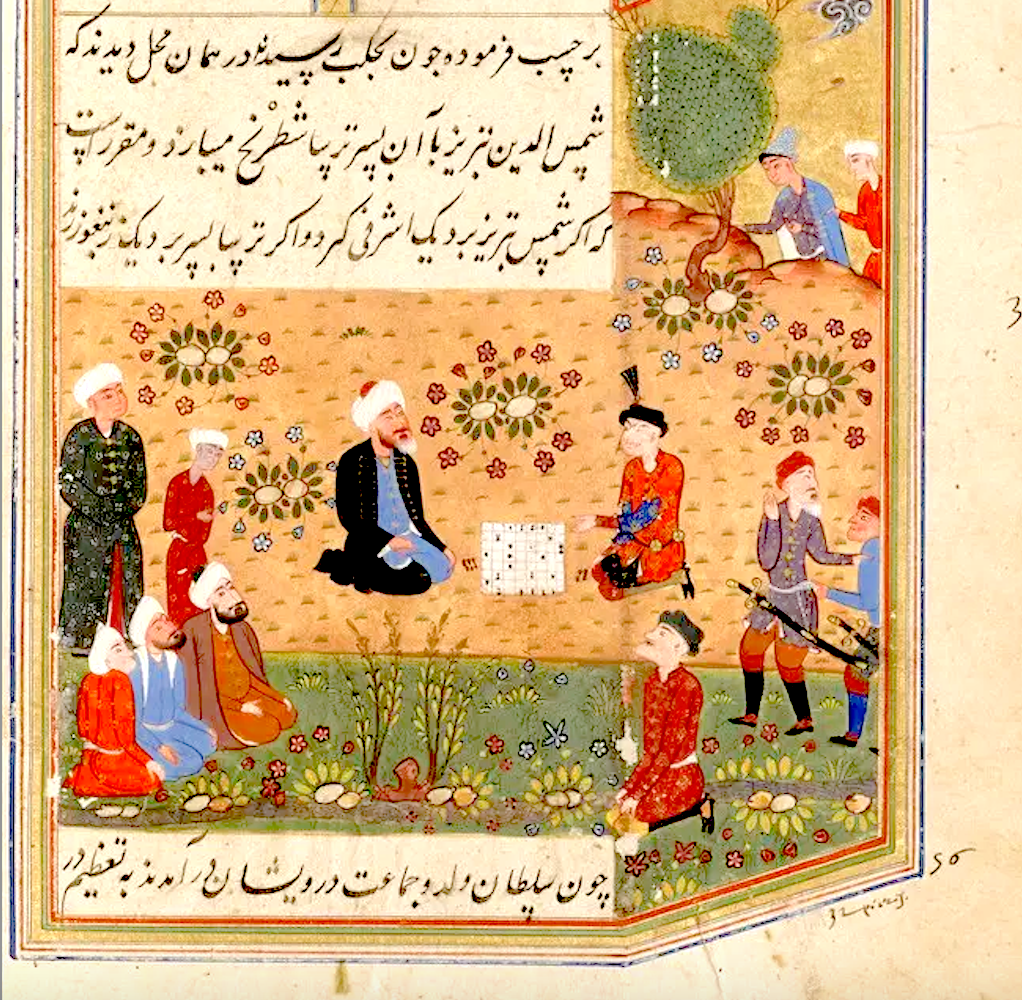 بر حسب فرموده چون بحلب رسیدند در همان محل دیدند که
شمس الدین تبریز با آن پسر ترسا شطرنج میبازد و مقرر است
که اکر شمس تبریز برد یک اشرفی کیرد و اکر ترسا پسر برد یک
چون سلطان ولد و جماعت درویشان در آمدند به تعظیم در
56